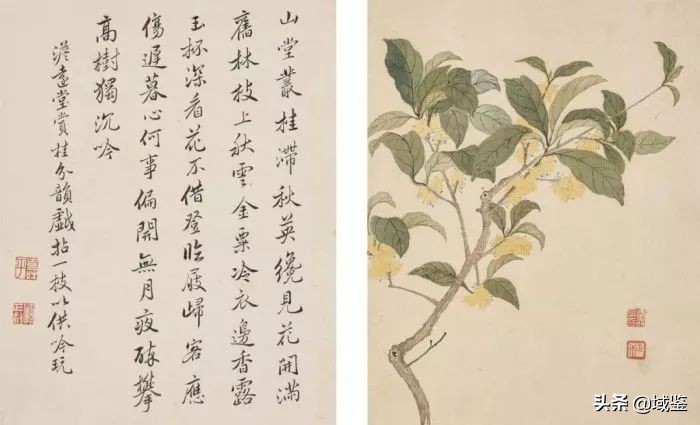 山堂叢桂滯秋英纔見花開滿
舊林枝上秋雲金粟冷衣邊香露
玉杯深看花不借登臨屐歸客應
傷遲暮心何事偏開無月夜醉攀
高樹獨沉吟
澹遠堂賞桂分韻戲拈一枝以供吟玩
头条 @域鉴